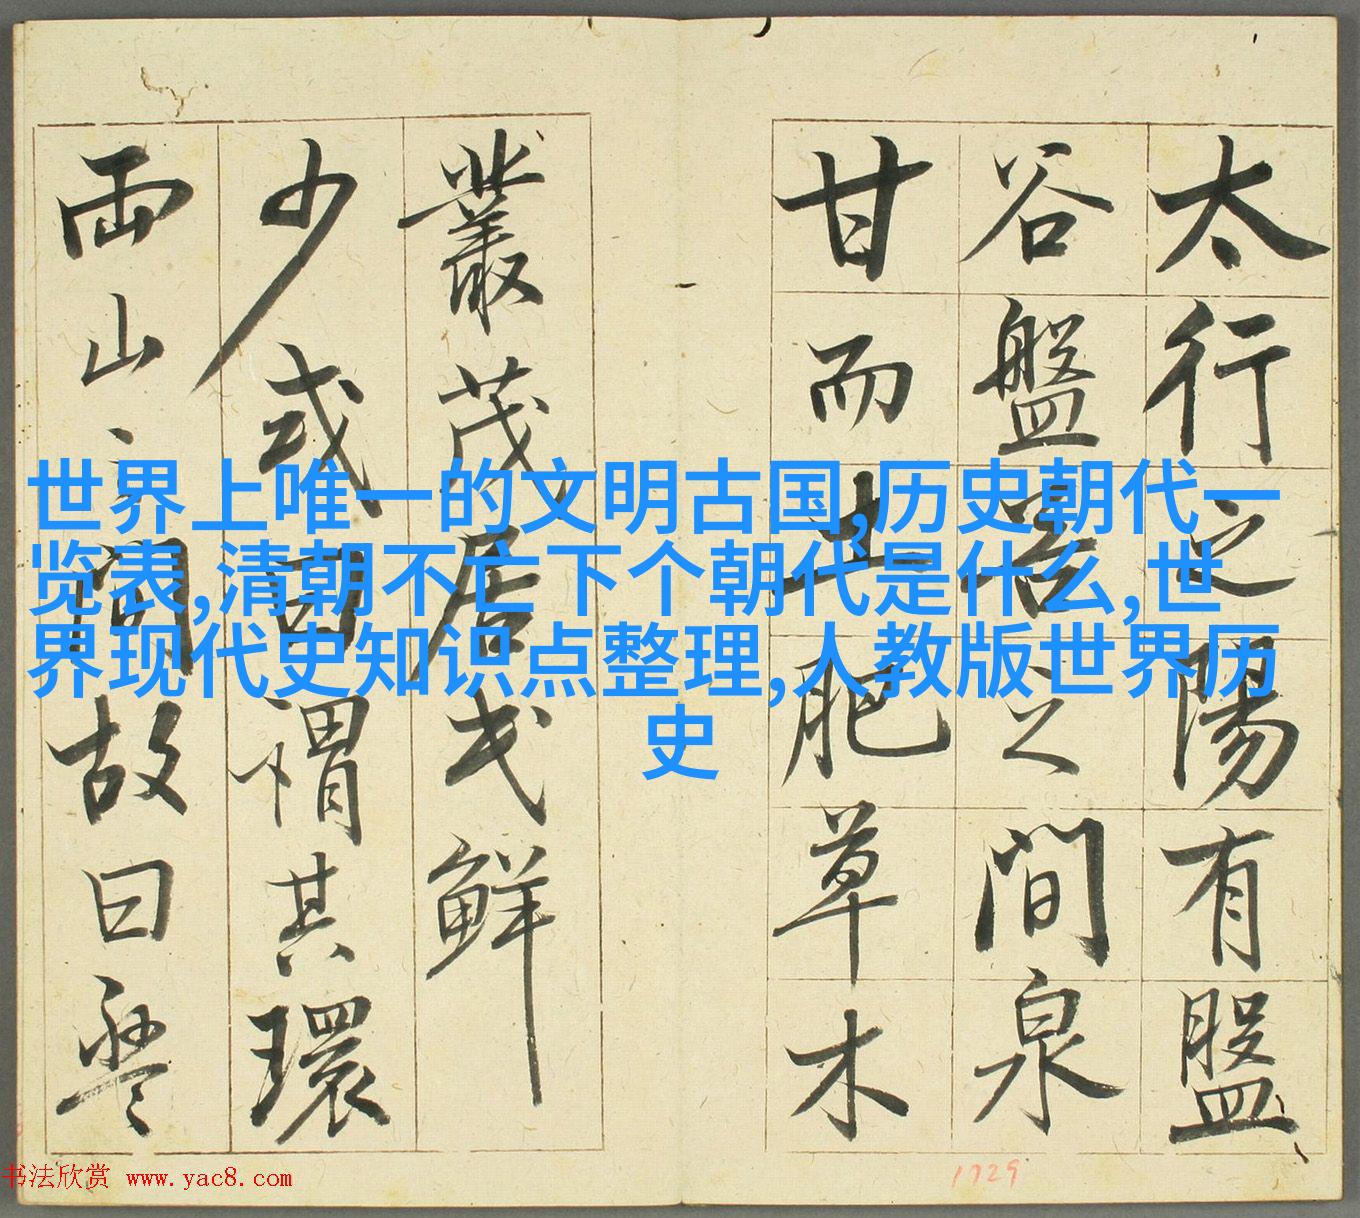 太行之陽有盤
谷盤谷之間泉
甘而土肥草木
叢茂居民鮮
少或曰謂其環
兩山之間故曰盤
世界上唯一的文明古国,历史朝代一
览表,清朝不亡下个朝代是什么,世
界现代史知识点整理,人教版世界历
史
书法欣赏 www.yac8.com
1729